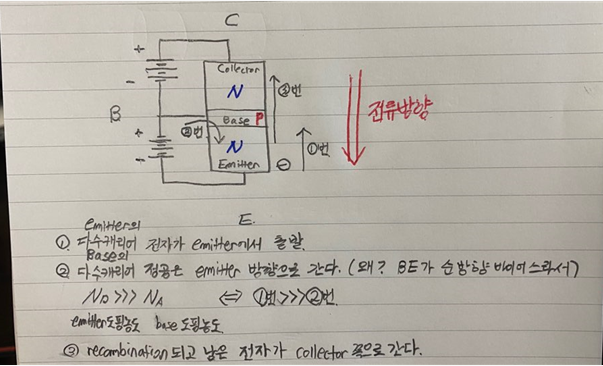 C
+
-
Collector
N
③번
B
Base P
②번
+
-
N
Emitter
⊖
①번
전류방향
E
emitter의
① 다수캐리어 전자가 emitter에서 출발.
Base의
② 다수캐리어 정공은 emitter 방향으로 간다. (왜? BE가 순방향 바이어스라서)
ND >>> NA ⇔ ①번>>>②번.
emitter도핑농도 base도핑농도
③ recombination되고 남은 전자가 collector 쪽으로 간다.